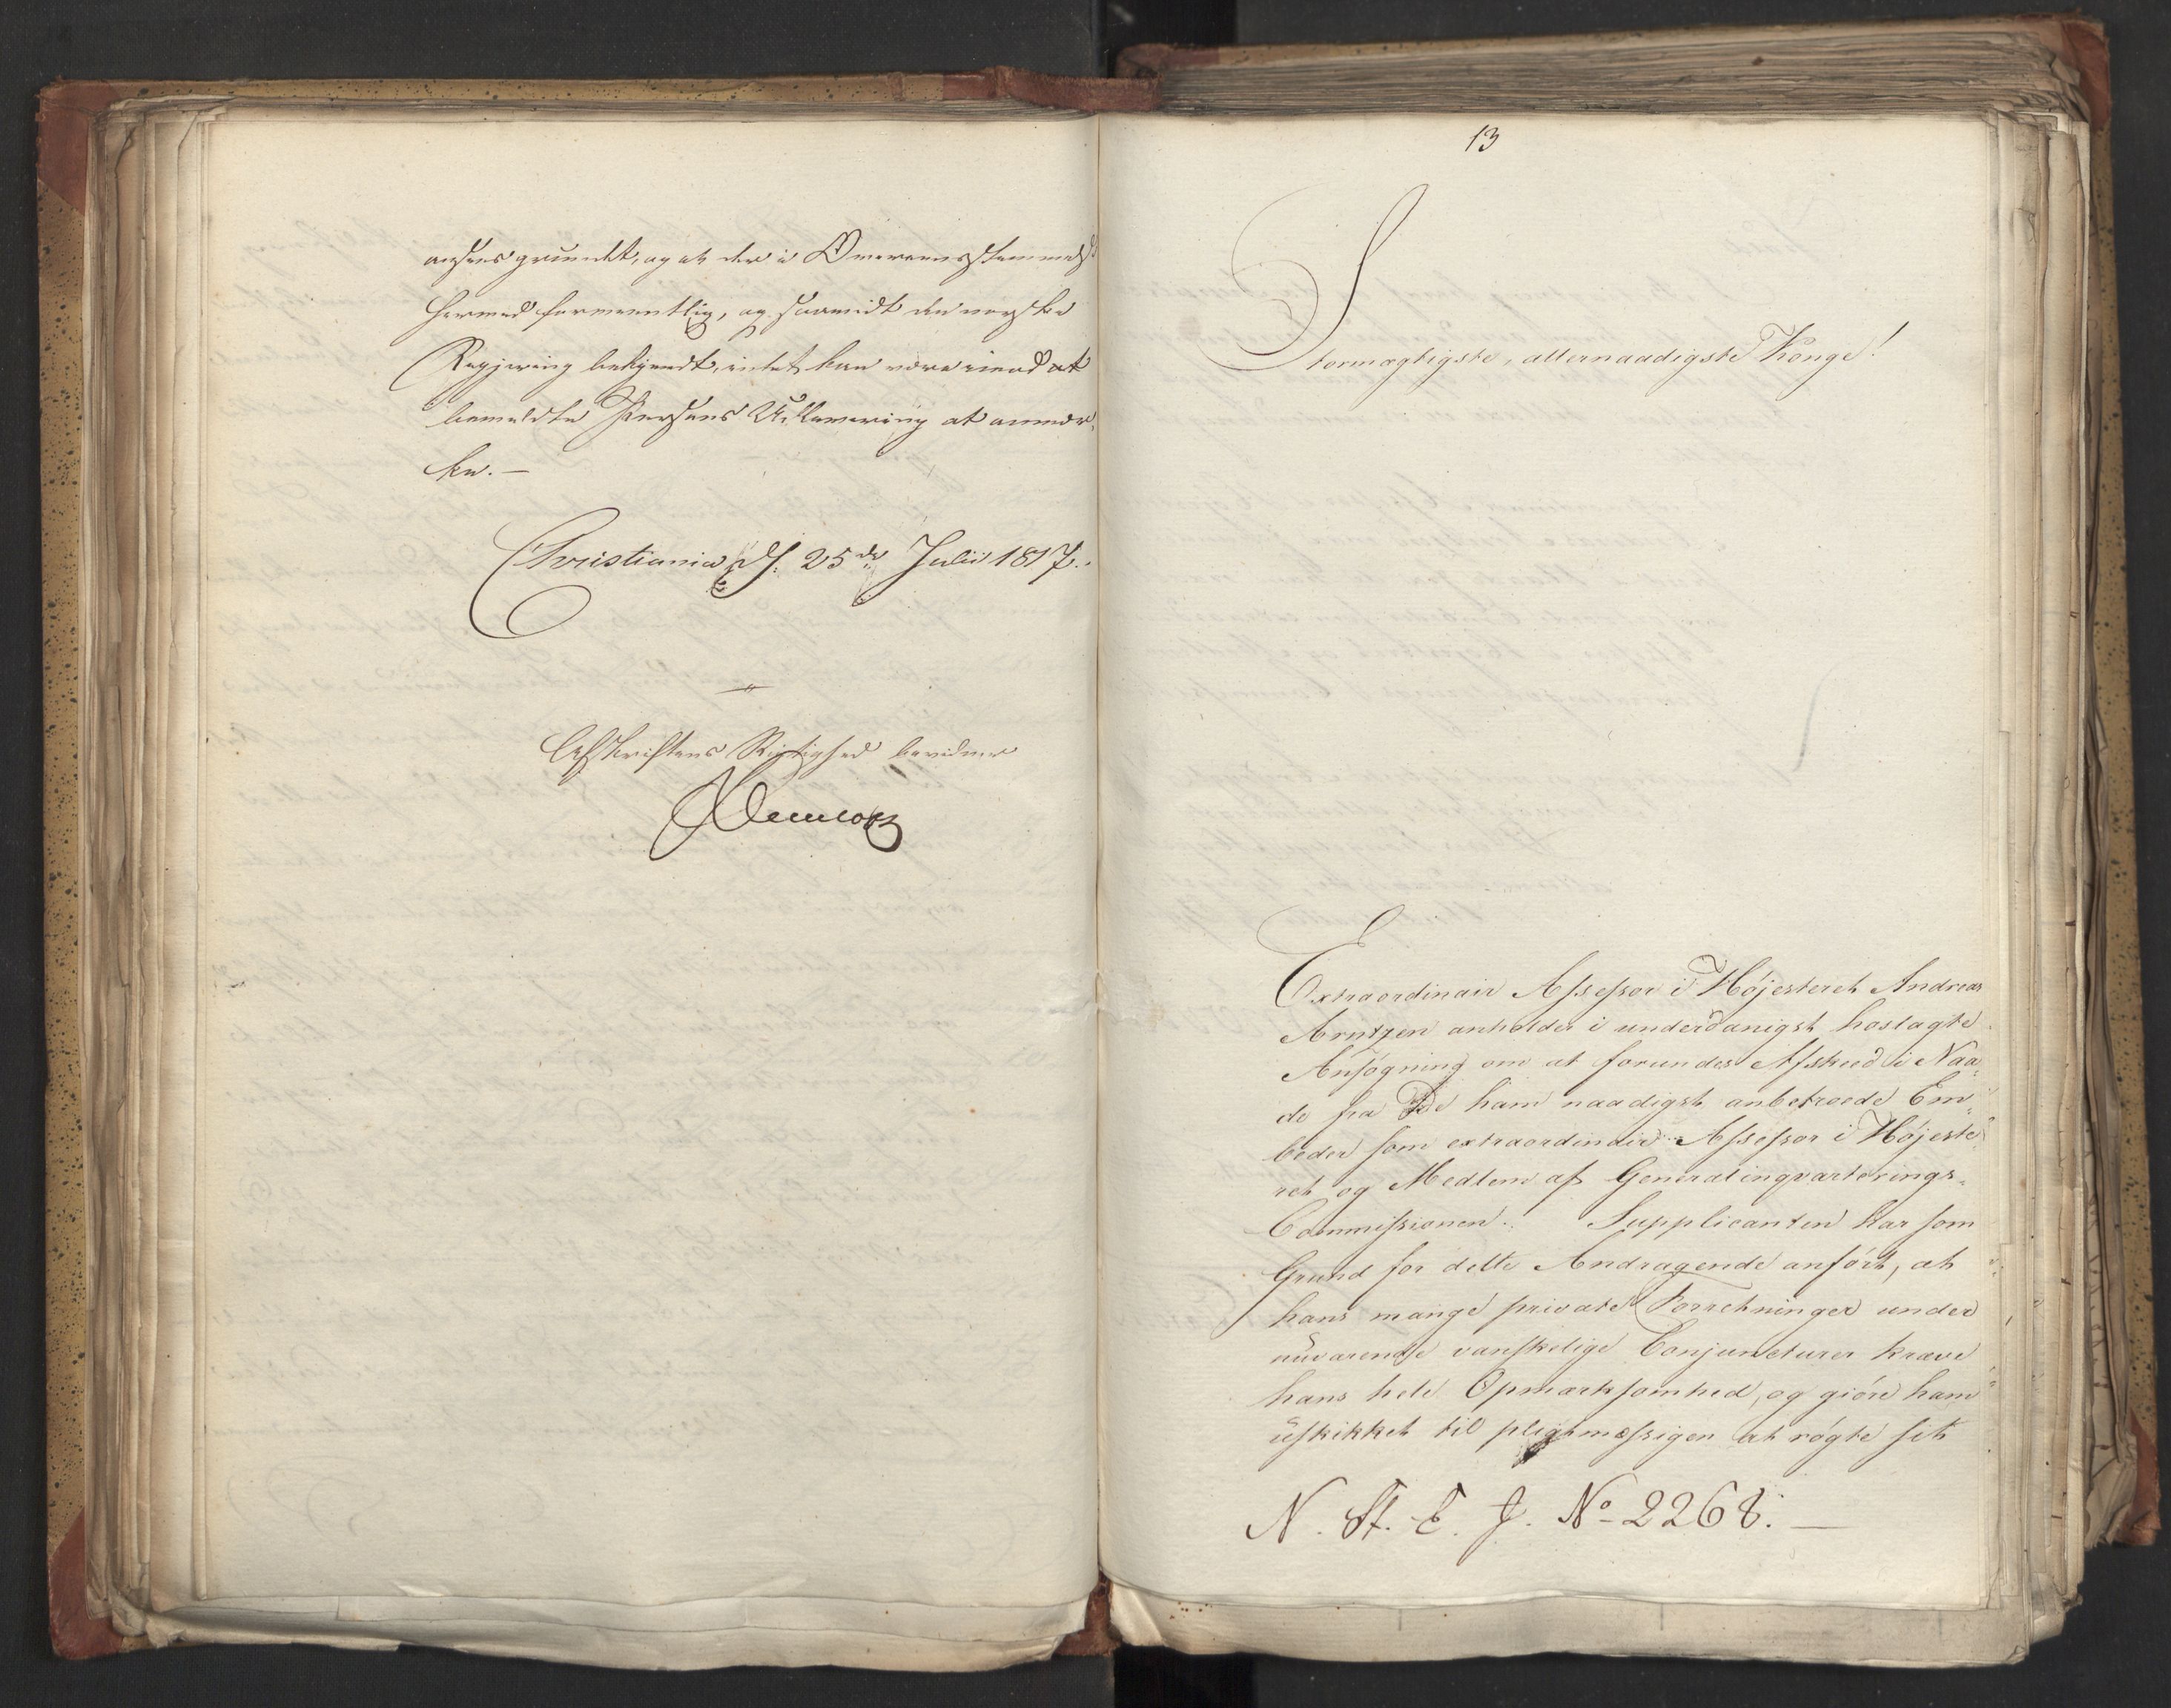 ansees grundet, og at der i Overeensstemmelse
hermed formeentlig, og saavidt den norske
Regjering bekjendt, intet kan være imod at
bemeldte Persons Udlevering at anmær-
ke. —
Christiania d. 25de Julii 1817.
Afskriftens Rigtighed bevidner
13
Stormægtigste, allernaadigste Konge!
Extraordinair Assessor i Højesteret Andreas
Arntzen anholder i underdanigst hoslagte
Ansøgning om at forundes Afskeed i Naa-
de fra De ham naadigst anbetroede Em-
beder som extraordinair Assessor i Højeste-
ret og Medlem af Generalinqvarterings-
Commissionen. Supplicanten har som
Grund for dette Andragende anført, at
hans mange private Forretninger under
nuværende vanskelige Conjuncturer kræve
hans hele Opmærksomhed, og giøre ham
uskikket til pligtmæssigen at røgte sit
N. St. E. J. No 2268. —